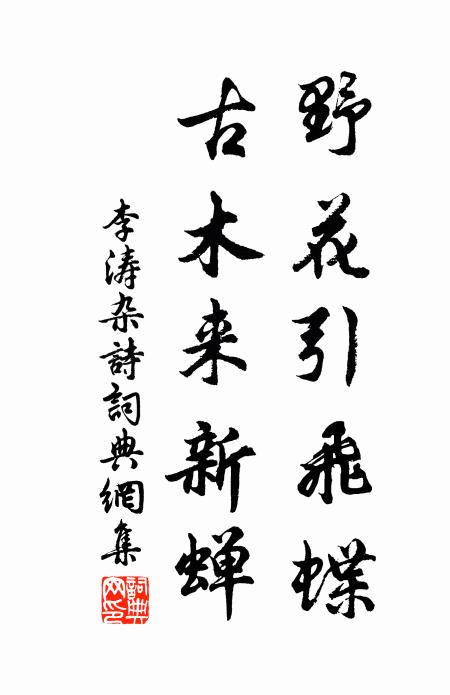 野花引飛蝶
古木来新蟬
李濤杂詩詞典網集
詞典網印